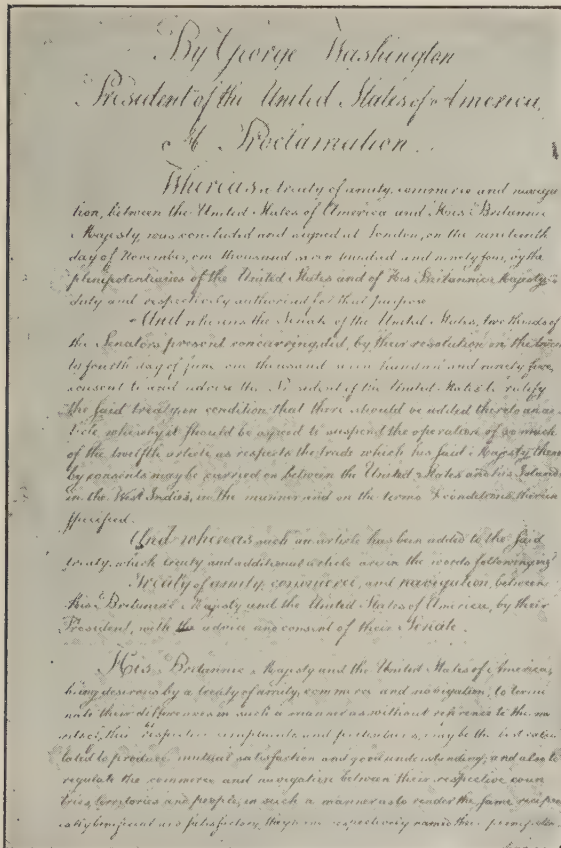 By George Washington
President of the United States of America,
A Proclamation.
Whereas a treaty of amity, commerce and naviga
tion, between the United States of America and His Britannic
Majesty, was concluded and signed at London, on the nineteenth
day of November, one thousand seven hundred and ninety four, by the
plenipotentiaries of the United States and of His Britannic Majesty,
duly and respectively authorized for that purpose
And whereas the Senate of the United States, two thirds of
the Senators present concurring, did, by their resolution on the twen
ty fourth day of June one thousand seven hundred and ninety five,
consent to and advise the President of the United States to ratify
the said treaty on condition that there should be added thereto an ar
ticle whereby it should be agreed to suspend the operation of so much
of the twelfth article as respects the trade which his said Majesty there
by consents may be carried on between the United States and his Islands
in the West Indies, in the manner and on the terms & conditions therein
specified.
And whereas such an article has been added to the said
treaty, which treaty and additional article are in the words following viz
Treaty of amity, commerce, and navigation, between
His Britannic Majesty and the United States of America, by their
President, with the advice and consent of their Senate.
His Britannic Majesty and the United States of America,
being desirous by a treaty of amity, commerce and navigation, to termi
nate their differences in such a manner as without reference to the me
rits of their respective complaints and pretensions, may be the best calcu
lated to produce mutual satisfaction and good understanding; and also to
regulate the commerce and navigation between their respective coun
tries, territories and people, in such a manner as to render the same recipro
cally beneficial and satisfactory, they have respectively named their